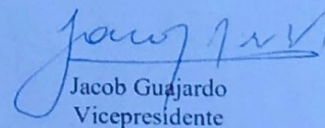 Jacob Guajardo
Vicepresidente